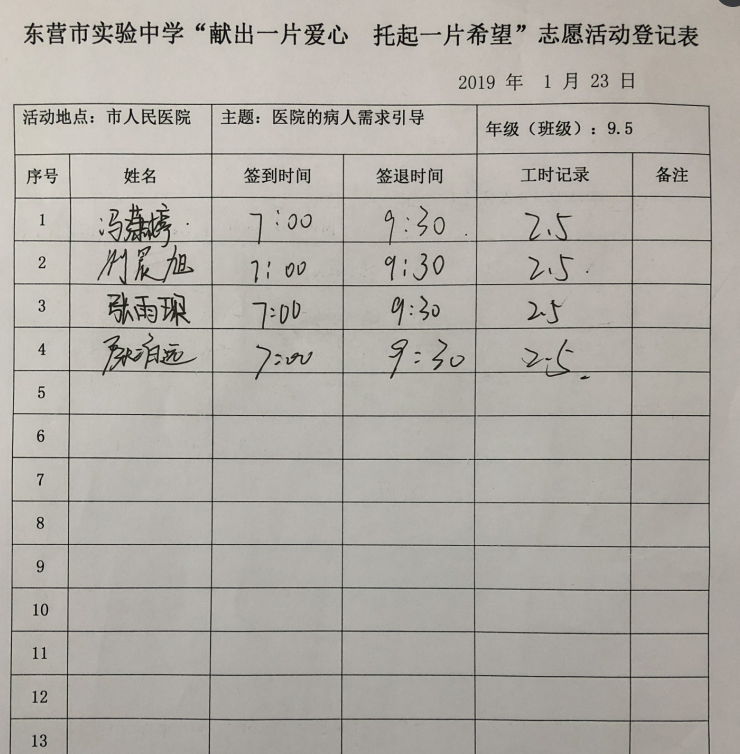 东营市实验中学“献出一片爱心 托起一片希望”志愿活动登记表
2019 年 1 月 23 日
活动地点：市人民医院 主题：医院的病人需求引导 年级（班级）：9.5
序号 姓名 签到时间 签退时间 工时记录 备注
1 冯潇婷 7:00 9:30 2.5
2 刘宸旭 7:00 9:30 2.5
3 张雨琪 7:00 9:30 2.5
4 7:00 9:30 2.5
5
6
7
8
9
10
11
12
13